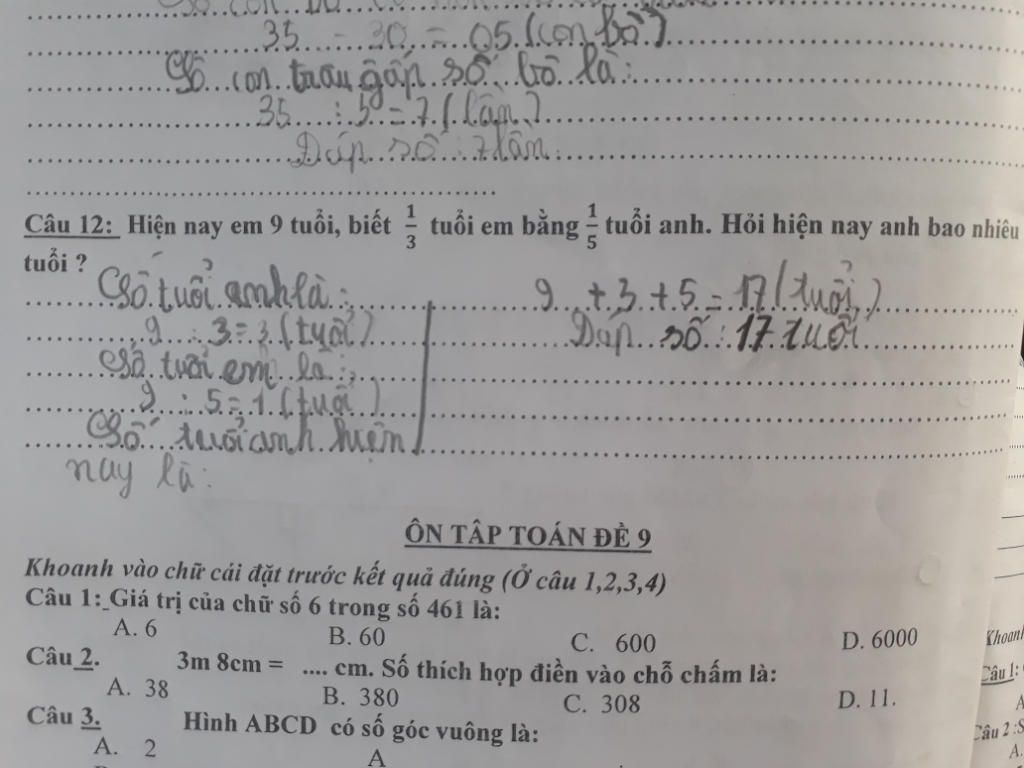 35 - 30 = 05 (con bò)
Số con trâu gấp số bò là:
35 : 5 = 7 (lần)
Đáp số: 7 lần.
Câu 12: Hiện nay em 9 tuổi, biết 1/3 tuổi em bằng 1/5 tuổi anh. Hỏi hiện nay anh bao nhiêu
tuổi ?
Số tuổi anh là:
9 : 3 = 3 (tuổi)
Số tuổi em là:
9 : 5 = 1 (tuổi)
Số tuổi anh hiện
nay là:
9 + 3 + 5 = 17 (tuổi)
Đáp số: 17 tuổi
ÔN TẬP TOÁN ĐỀ 9
Khoanh vào chữ cái đặt trước kết quả đúng (Ở câu 1,2,3,4)
Câu 1: Giá trị của chữ số 6 trong số 461 là:
A. 6 B. 60 C. 600 D. 6000
Câu 2. 3m 8cm = .... cm. Số thích hợp điền vào chỗ chấm là:
A. 38 B. 380 C. 308 D. 11.
Câu 3. Hình ABCD có số góc vuông là:
A. 2 A
Khoanh
Câu 1:
A
Câu 2 :S
A.